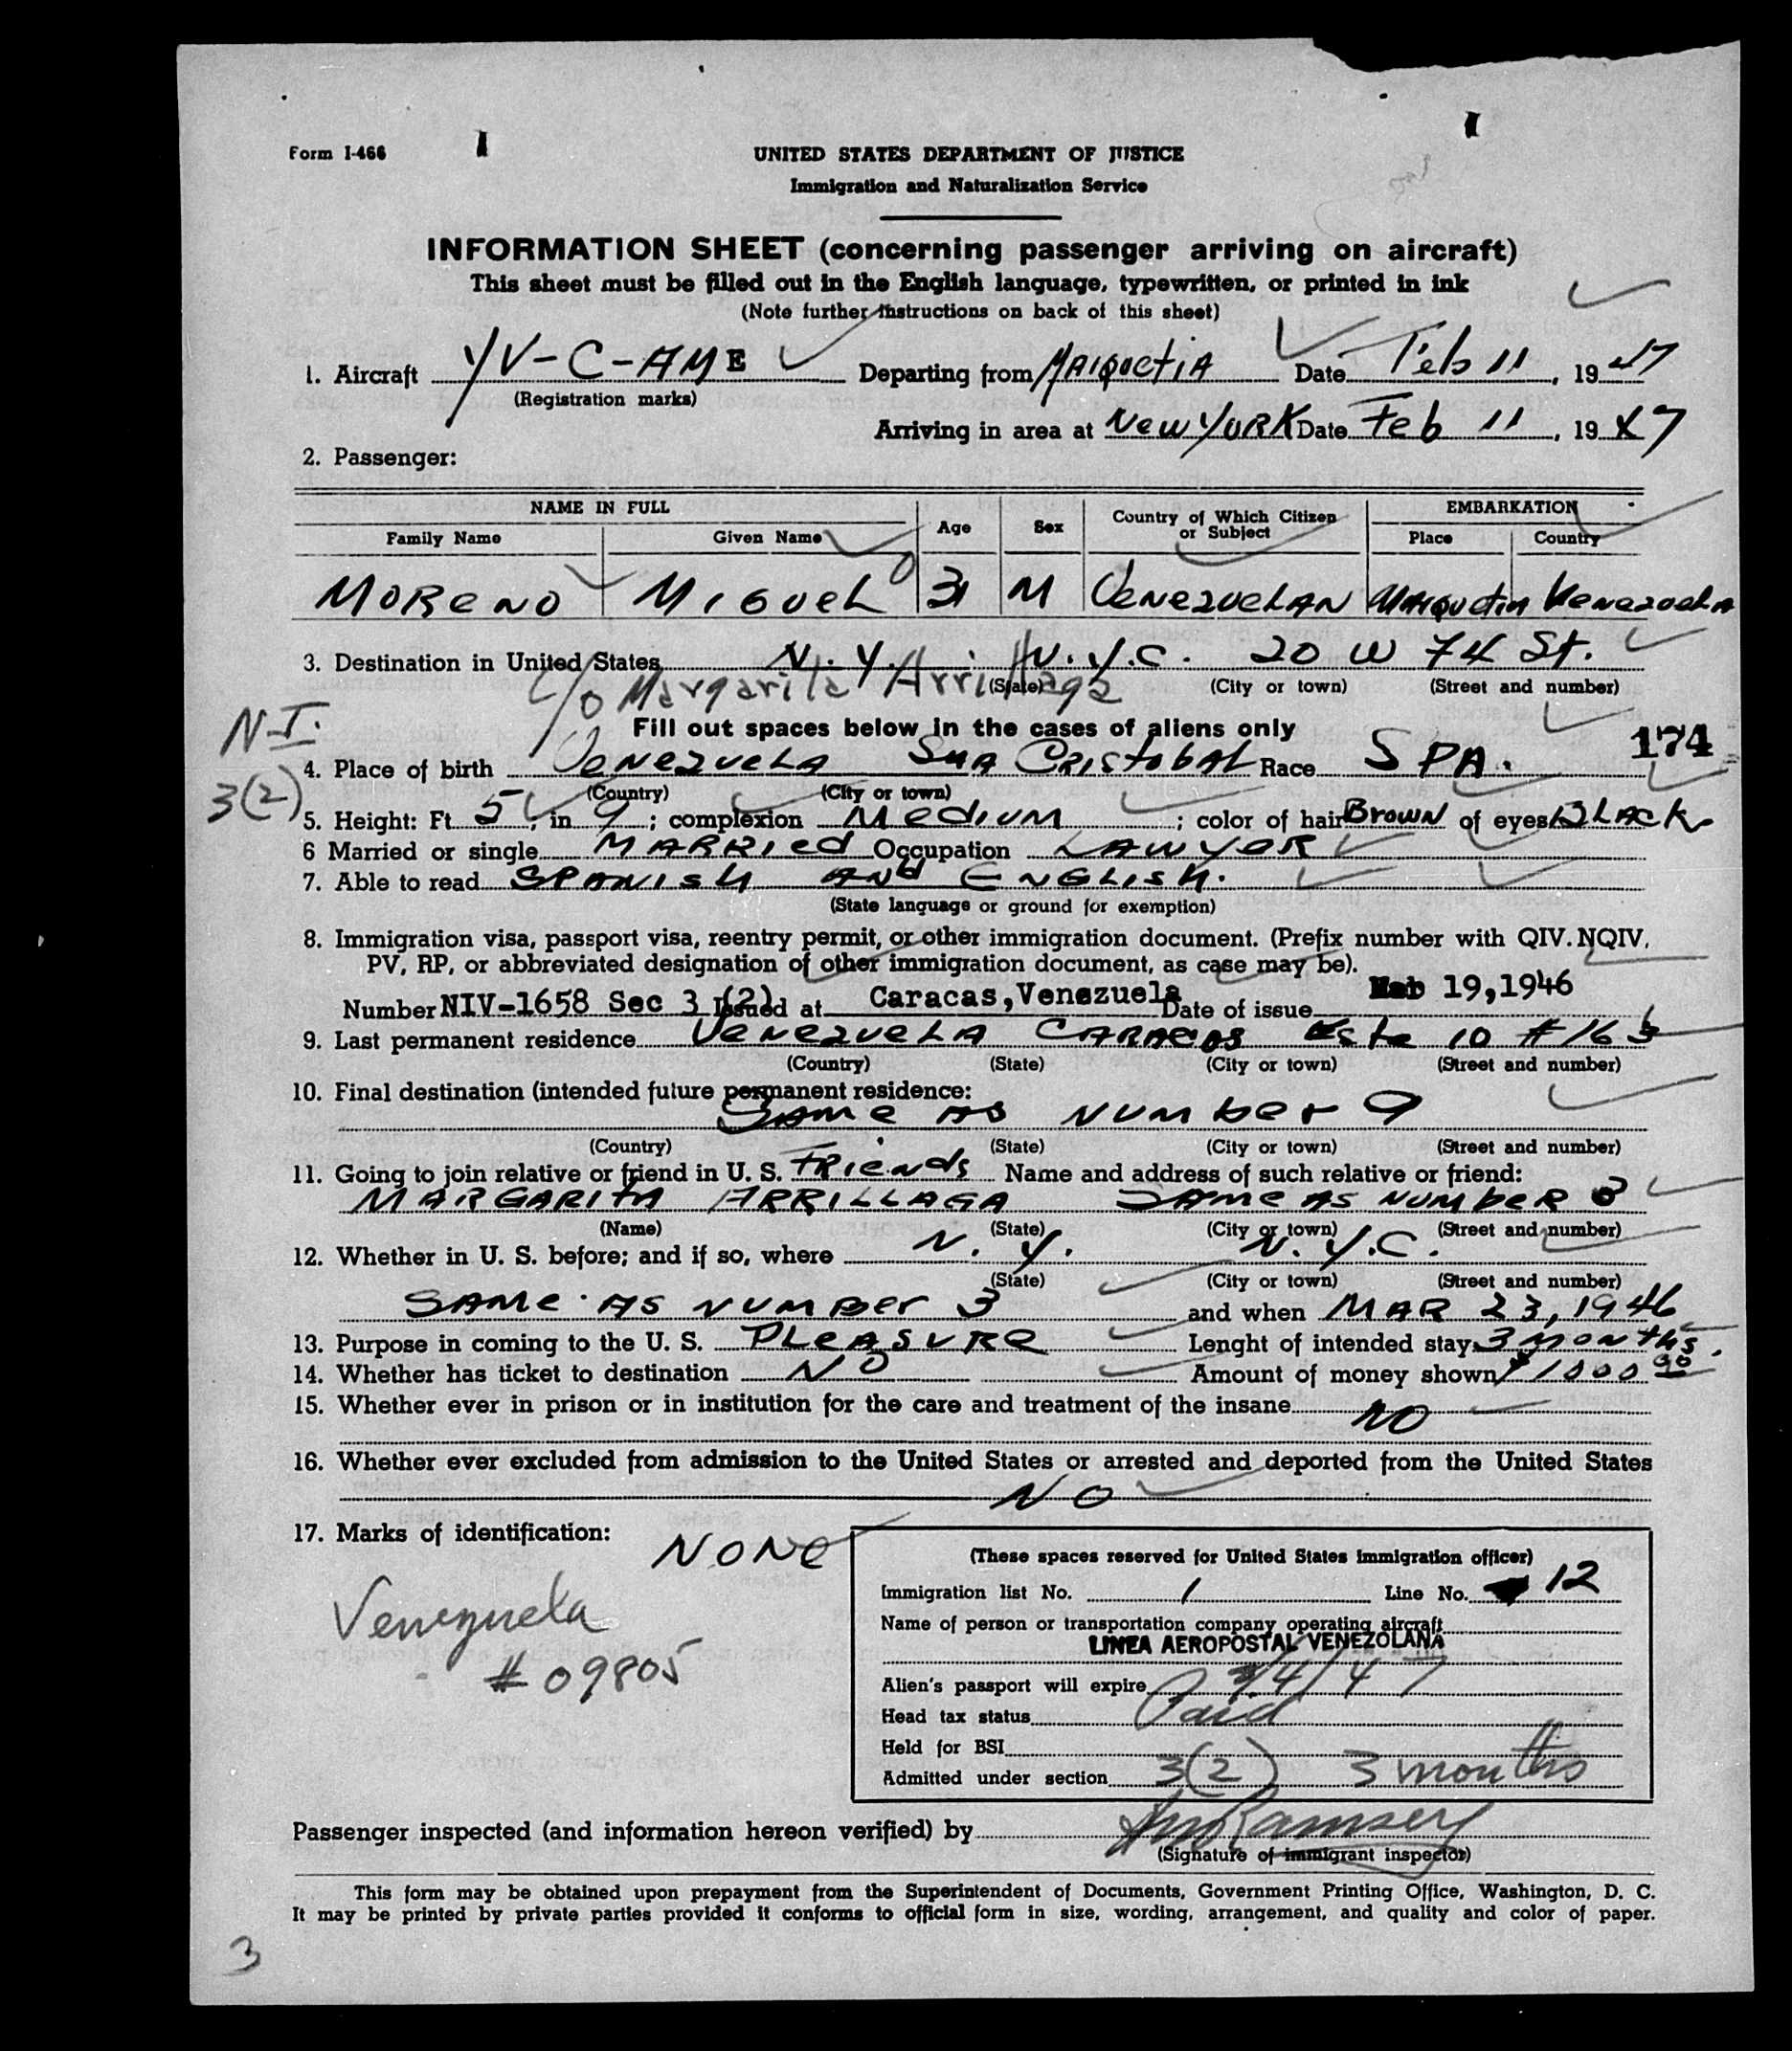 Form I-466
UNITED STATES DEPARTMENT OF JUSTICE
Immigration and Naturalization Service
INFORMATION SHEET (concerning passenger arriving on aircraft)
This sheet must be filled out in the English language, typewritten, or printed in ink
(Note further instructions on back of this sheet)
1. Aircraft YV-C-AME Departing from MAIQUETIA Date Feb 11, 1947
(Registration marks)
Arriving in area at NEW YORK Date Feb 11, 1947
2. Passenger:
NAME IN FULL Age Sex Country of Which Citizen or Subject EMBARKATION
Family Name Given Name Place Country
MORENO MIGUEL 31 M VENEZUELAN MAIQUETIA VENEZUELA
3. Destination in United States N.Y. N.Y.C. 20 W 74 St.
(State) (City or town) (Street and number)
c/o Margarita Arrillaga
N-I. Fill out spaces below in the cases of aliens only
174
4. Place of birth VENEZUELA SAN CRISTOBAL Race SPA.
(Country) (City or town)
3(2)
5. Height: Ft. 5, in 9; complexion MEDIUM; color of hair BROWN of eyes BLACK
6 Married or single MARRIED Occupation LAWYOR
7. Able to read SPANISH AND ENGLISH.
(State language or ground for exemption)
8. Immigration visa, passport visa, reentry permit, or other immigration document. (Prefix number with QIV. NQIV,
PV, RP, or abbreviated designation of other immigration document, as case may be).
Number NIV-1658 Sec 3 (2) Issued at Caracas, Venezuela Date of issue 19, 1946
9. Last permanent residence VENEZUELA CARACAS Este 10 # 163
(Country) (State) (City or town) (Street and number)
10. Final destination (intended future permanent residence:
SAME AS NUMBER 9
(Country) (State) (City or town) (Street and number)
11. Going to join relative or friend in U. S. FRIENDS Name and address of such relative or friend:
MARGARITA ARRILLAGA SAME AS NUMBER 3
(Name) (State) (City or town) (Street and number)
12. Whether in U. S. before; and if so, where N.Y. N.Y.C.
(State) (City or town) (Street and number)
SAME AS NUMBER 3 and when MAR 23, 1946
13. Purpose in coming to the U. S. PLEASURE Lenght of intended stay 3 months.
14. Whether has ticket to destination NO Amount of money shown $1000 00
15. Whether ever in prison or in institution for the care and treatment of the insane NO
16. Whether ever excluded from admission to the United States or arrested and deported from the United States
NO
17. Marks of identification: NONE
Venezuela
# 09805
(These spaces reserved for United States immigration officer)
Immigration list No. 1 Line No. 12
Name of person or transportation company operating aircraft
LINEA AEROPOSTAL VENEZOLANA
Alien's passport will expire /4/47
Head tax status Paid
Held for BSI
Admitted under section 3(2) 3 months
Passenger inspected (and information hereon verified) by Ramsey
(Signature of immigrant inspector)
This form may be obtained upon prepayment from the Superintendent of Documents, Government Printing Office, Washington, D. C.
It may be printed by private parties provided it conforms to official form in size, wording, arrangement, and quality and color of paper.
3